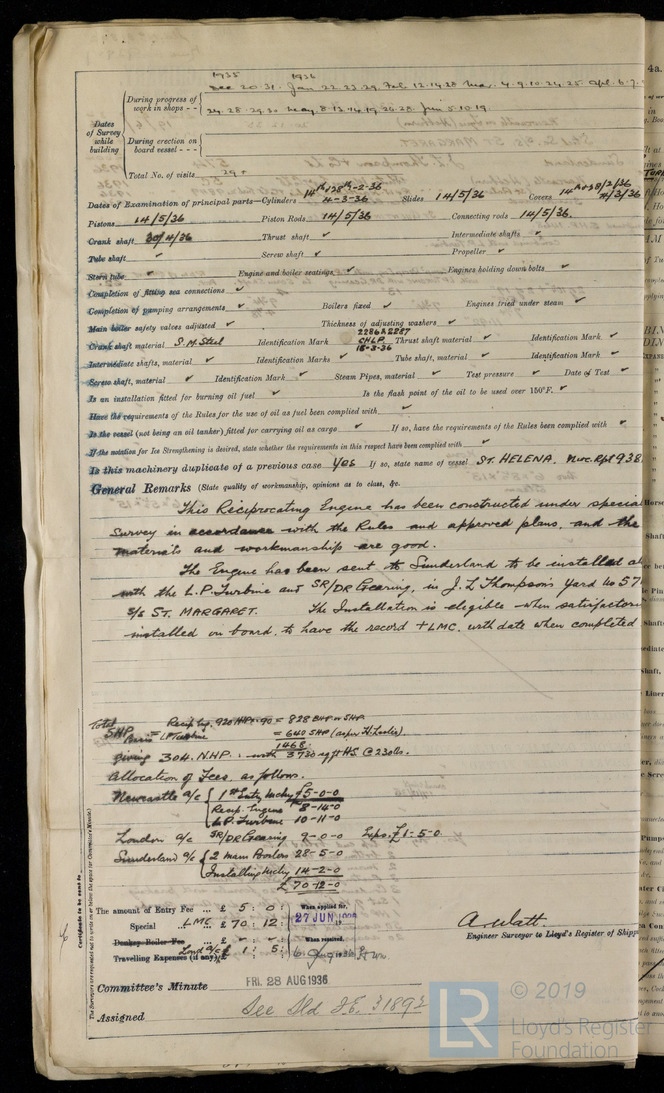 1935 1936
Dec 20. 31. Jan 22. 23. 29. Feb. 12. 14. 28 Mar. 4. 9. 10. 24. 25. Apl. 6. 7.
During progress of work in shops - -
24. 28. 29. 30. May. 8. 12. 14. 19. 26. 28. Jun 5. 10. 19.
Dates of Survey while building
During erection on board vessel - - -
Total No. of visits 29+
Dates of Examination of principal parts—Cylinders 14th & 28th-2-36 4-3-36 Slides 14/5/36 Covers 14th & 28/2/36 4/3/36
Pistons 14/5/36 Piston Rods 14/5/36 Connecting rods 14/5/36.
Crank shaft 30/4/36 Thrust shaft ✓ Intermediate shafts ✓
Tube shaft ✓ Screw shaft ✓ Propeller ✓
Stern tube ✓ Engine and boiler seatings ✓ Engines holding down bolts ✓
Completion of fitting sea connections ✓
Completion of pumping arrangements ✓ Boilers fixed ✓ Engines tried under steam ✓
Main boiler safety valves adjusted ✓ Thickness of adjusting washers ✓
Crank shaft material S.M. Steel Identification Mark 2286 & 2287 CHLP 18-3-36 Thrust shaft material ✓ Identification Mark ✓
Intermediate shafts, material ✓ Identification Marks ✓ Tube shaft, material ✓ Identification Mark ✓
Screw shaft, material ✓ Identification Mark ✓ Steam Pipes, material ✓ Test pressure ✓ Date of Test ✓
Is an installation fitted for burning oil fuel ✓ Is the flash point of the oil to be used over 150°F. ✓
Have the requirements of the Rules for the use of oil as fuel been complied with ✓
Is the vessel (not being an oil tanker) fitted for carrying oil as cargo ✓ If so, have the requirements of the Rules been complied with ✓
If the notation for Ice Strengthening is desired, state whether the requirements in this respect have been complied with ✓
Is this machinery duplicate of a previous case Yes If so, state name of vessel ST. HELENA. Nwc. Rpt 938
General Remarks (State quality of workmanship, opinions as to class, &c.
This Reciprocating Engine has been constructed under special
Survey in accordance with the Rules and approved plans, and the
materials and workmanship are good.
The Engine has been sent to Sunderland to be installed
with the L.P. Turbine and SR/DR Gearing, in J. L Thompson's Yard No 57
S/S ST. MARGARET. The Installation is elegible when satisfactori
installed on board, to have the record +LMC. with date when completed
Total Recip Eng. 920 IHP × .90 = 828 BHP or SHP
SHP LP Turbine = 640 SHP (as per H Leslie).
1468
giving 304. N.H.P. : with 3730 sq ft H.S. @ 230 lbs.
Allocation of Fees. as follows.
Newcastle a/c { 1st Entry Mchy £5-0-0
Recip. Engine 8-14-0
L.P. Turbine 10-11-0
London a/c SR/DR Gearing 9-0-0 Exps. £1-5-0
Sunderland a/c { 2 Main Boilers 28-5-0
Installing Mchy 14-2-0
£70-12-0
The amount of Entry Fee ... £ 5 : 0 : When applied for,
Special LMC ... £ 70 : 12 : 27 JUN 1936
Donkey Boiler Fee ... £ : : When received,
Travelling Expenses (if any) £ 1 : 5 :
A. Watt.
Engineer Surveyor to Lloyd's Register of Shipp
Committee's Minute FRI. 28 AUG 1936
Assigned See Sld J.E. 31893
Certificate to be sent to
(The Surveyors are requested not to write on or below the space for Committee's Minute.)
LR © 2019
Lloyd's Register
Foundation